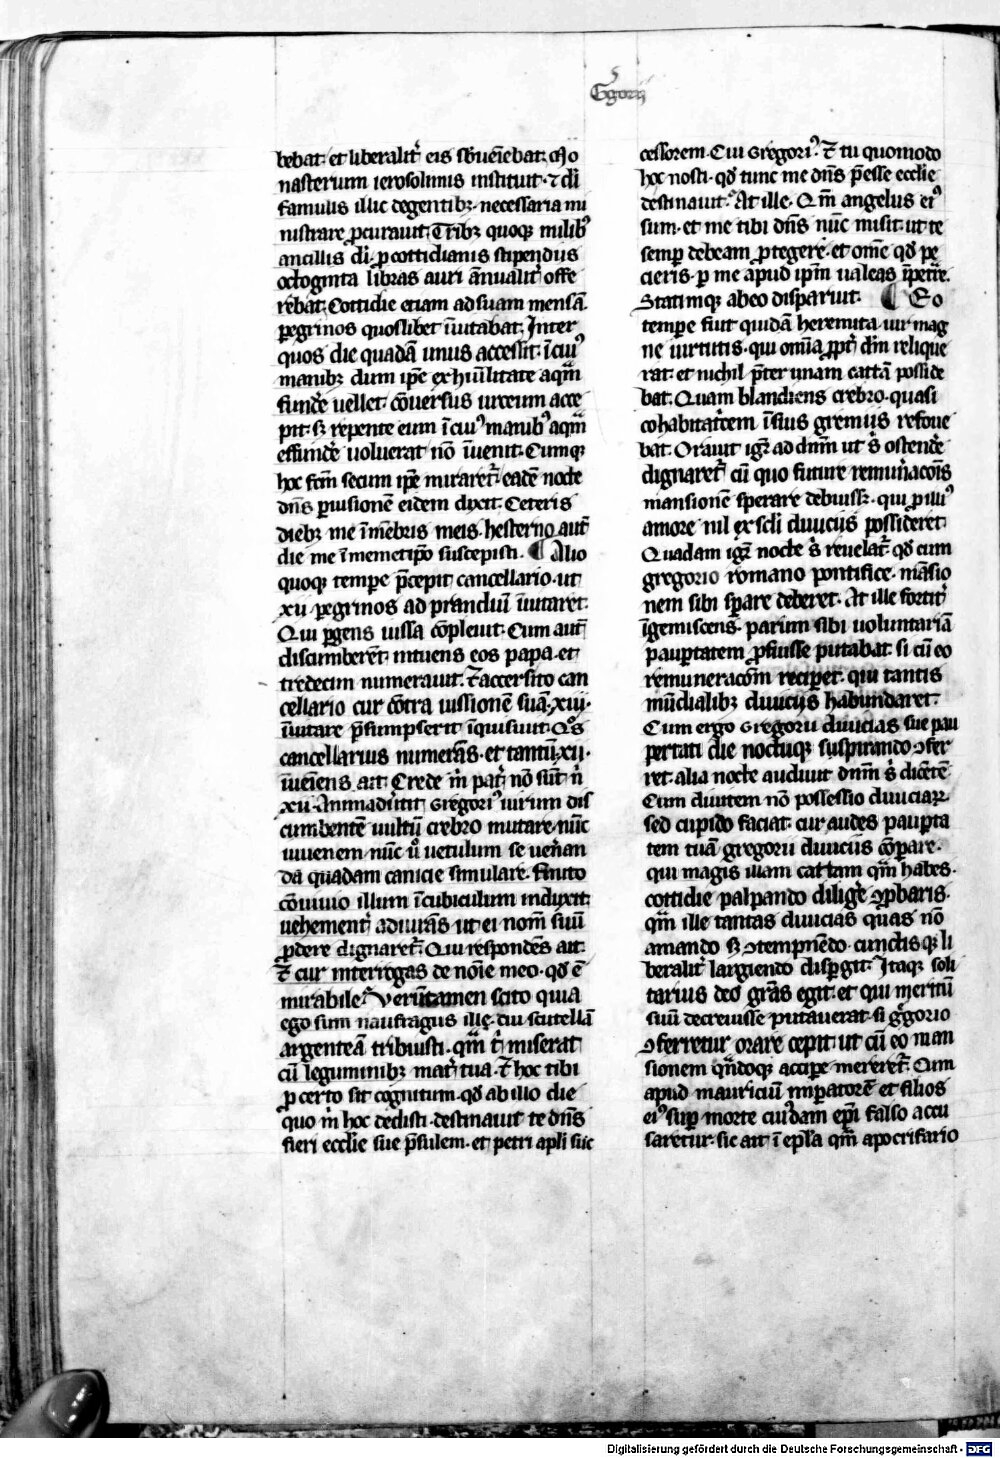 Ggorij
bebat· et liberalit᷑ eis sbueniebat. Mo
nasterium ierosolimis instituit· ⁊ di
famulis illic degentibꝫ· necessaria mi
nistrare ꝓcurauit. Tribꝫ quoqꝫ milibꝰ
ancillis di· ꝓ cottidianis stipendijs
octoginta libras auri ānualit᷑ offe
rebat. Cottidie etiam ad suam mensā
ꝑegrinos quoslibet īuitabat. Inter
quos die quadā unus accessit· ī cuiꝰ
manibꝫ dum ip̄e ex hūilitate aquā
fund̄e uellet· ꝯuersus urceum acce
pit· sꝫ repente eum ī cuiꝰ manibꝰ aquā
effund̄e uoluerat nō īuenit. Cumqꝫ
hoc fc̄m secum ip̄e miraret᷑· eadē nocte
dn̄s ꝑ uisionē eidem dixit. Ceteris
diebꝫ me ī mēbris meis· hesterno aut̄
die me ī memetip̄o suscepisti. ¶ Alio
quoqꝫ tempe p̄cepit cancellario· ut
xii ꝑegrinos ad prandiū īuitaret·
Qui ꝑgens iussa cōpleuit. Cum aut̄
discumberēt intuens eos papa· et
tredecim numerauit· Et accersito can
cellario cur cōtra iussionē suā· xiii·
īuitare p̄sumpserit īquisiuit. Qͦs
cancellarius numerās· et tantū xii·
īueniens ait. Crede m̄ pat̄ nō sūt nͥ
xii. Animaduertit Gregoriꝰ uirum dis
cumbentē uultū crebro mutare· nūc
iuuenem nūc uͦ uetulum se ueneran
da quadam canicie simulare. Finito
cōuiuio illum ī cubiculum induxit·
uehement᷑ adiurās ut ei nom̄ suū
ꝓdere dignaret᷑. Qui respondēs ait·
Et cur interrogas de noīe meo· qd̄ ē
mirabile? Verūtamen scito quia
ego sum naufragus ille· cui scutellā
argenteā tribuisti· quā tͥ miserat
cū leguminibꝫ mat̄ tua· Et hoc tibi
ꝓ certo sit cognitum· qd̄ ab illo die
quo m̄ hoc dedisti· destinauit te dn̄s
fieri ecclie sue p̄sulem· et petri apli suc
cessorem. Cui Gregoriꝰ. Et tu quomodo
hoc nosti· qd̄ tunc me dn̄s p̄esse ecclie
destinauit? At ille. Qm̄ angelus eiꝰ
sum· et me tibi dn̄s nūc misit· ut te
semꝑ debeam ꝓtegere· et om̄e qd̄ pe
cieris· ꝑ me apud ip̄m ualeas īpetrͣe.
Statimqꝫ abeo disparuit. ¶ Eo
tempe fuit quidā heremita uir mag
ne uirtutis· qui om̄ia ꝓpt᷑ dm̄ relique
rat· et nichil p̄ter unam cattā posside
bat. Quam blandiens crebro· quasi
cohabitatͥcem ī suis gremijs refoue
bat. Orauit igr̄ ad dnm̄ ut sͥ ostend̄e
dignaret᷑ cū quo future remun̄acōis
mansionē sperare debuissꝫ· qui ꝓ illiꝰ
amore nil ex scl̄i diuicijs possideret·
Quadam igr̄ nocte sͥ reuelat᷑· qd̄ cum
gregorio romano pontifice· mansio
nem sibi sꝑare deberet. At ille fortit᷑
īgemiscens· parum sibi uoluntariā
pauꝑtatem ꝓfuisse putabat· si cū eo
remuneracōm reciꝑet· qui tantis
mūdialibꝫ diuicijs habundaret·
Cum ergo Gregorii diuicias sue pau
pertati die noctuqꝫ suspirando ꝯfer
ret· alia nocte audiuit dnm̄ sͥ dicētē
Cum diuitem nō possessio diuiciaꝝ
sed cupido faciat· cur audes pauꝑta
tem tuā gregorii diuicijs cōparare·
qui magis illam cattam quā habes·
cottidie palpando diliḡe ꝯprobaris·
quā ille tantas diuicias quas nō
amando sꝫ ꝯtempnēdo· cunctisqꝫ li
beralit᷑ largiendo disꝑgit. Itaqꝫ soli
tarius deo grās egit· et qui meritū
suū decreuisse putauerat· si gͥgorio
ꝯferretur orare cepit ut cū eo man
sionem qn̄doqꝫ accipe mereret᷑. Cum
apud mauriciū imꝑatorē et filios
eiꝰ suꝑ morte cuiꝰdam epi falso accu
saretur· sic ait ī epla quā apocrifario
Digitalisierung gefördert durch die Deutsche Forschungsgemeinschaft · DFG